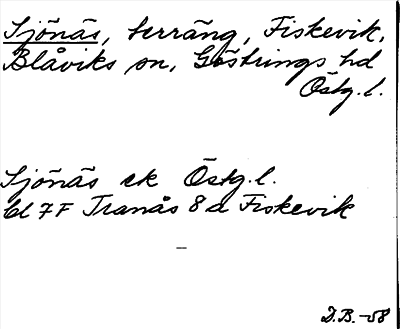 Sjönäs, terräng, Fiskevik,
Blåviks sn, Göstrings hd
Östg.l.
Sjönäs ek Östg.l.
bl 7F Tranås 8 d Fiskevik
D.B. -58